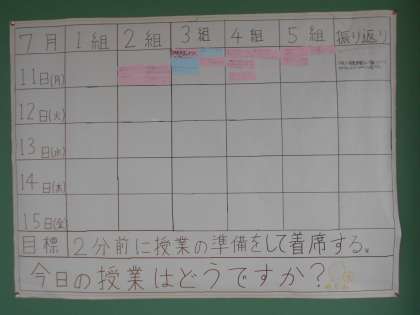 7月 1組 2組 3組 4組 5組 振り返り
11日(月)
12日(火)
13日(水)
14日(木)
15日(金)
目標 2分前に授業の準備をして着席する。
今日の授業はどうですか?